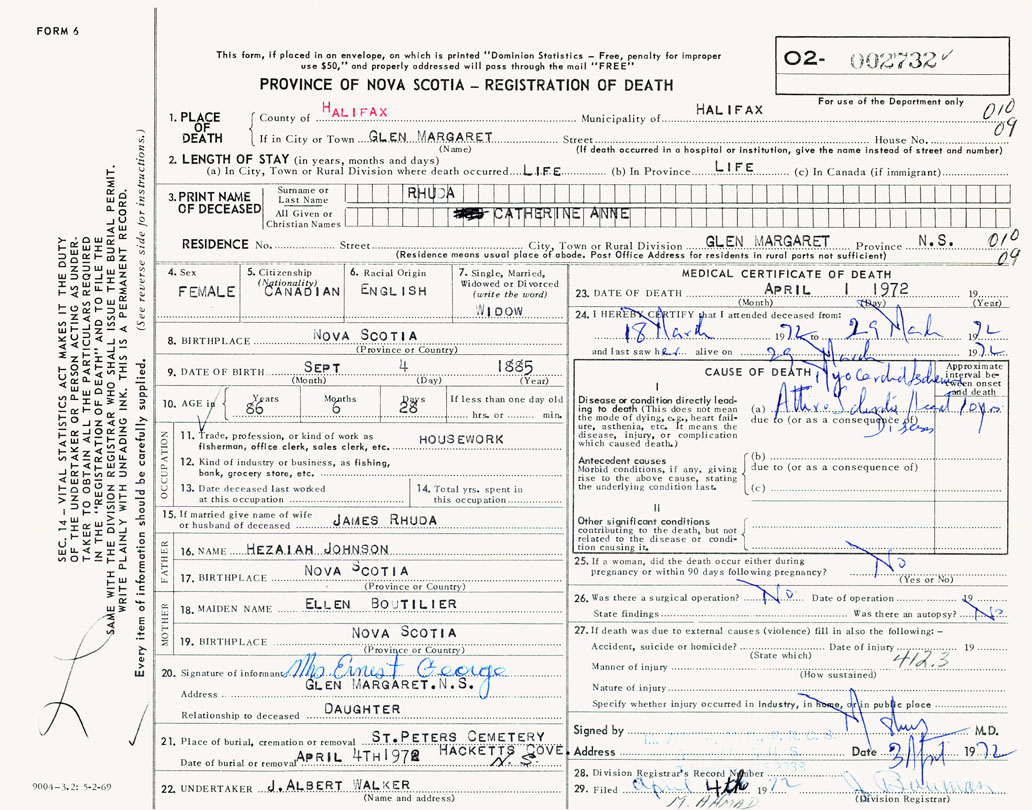 FORM 6
This form, if placed in an envelope, on which is printed "Dominion Statistics – Free, penalty for improper
use $50," and properly addressed will pass through the mail "FREE"
PROVINCE OF NOVA SCOTIA – REGISTRATION OF DEATH
O2- 002732
For use of the Department only
010
09
1. PLACE OF DEATH
County of HALIFAX Municipality of HALIFAX
If in City or Town GLEN MARGARET Street House No.
(Name) (If death occurred in a hospital or institution, give the name instead of street and number)
2. LENGTH OF STAY (in years, months and days)
(a) In City, Town or Rural Division where death occurred LIFE (b) In Province LIFE (c) In Canada (if immigrant)
3. PRINT NAME OF DECEASED
Surname or Last Name RHUDA
All Given or Christian Names CATHERINE ANNE
RESIDENCE No. Street City, Town or Rural Division GLEN MARGARET Province N.S. 010
(Residence means usual place of abode. Post Office Address for residents in rural parts not sufficient) 09
4. Sex
FEMALE
5. Citizenship
(Nationality)
CANADIAN
6. Racial Origin
ENGLISH
7. Single, Married,
Widowed or Divorced
(write the word)
WIDOW
8. BIRTHPLACE NOVA SCOTIA
(Province or Country)
9. DATE OF BIRTH SEPT 4 1885
(Month) (Day) (Year)
10. AGE in Years Months Days If less than one day old
86 6 28 hrs. or min.
OCCUPATION
11. Trade, profession, or kind of work as
fisherman, office clerk, sales clerk, etc. HOUSEWORK
12. Kind of industry or business, as fishing,
bank, grocery store, etc.
13. Date deceased last worked
at this occupation
14. Total yrs. spent in
this occupation
15. If married give name of wife
or husband of deceased JAMES RHUDA
FATHER
16. NAME HEZAIAH JOHNSON
17. BIRTHPLACE NOVA SCOTIA
(Province or Country)
MOTHER
18. MAIDEN NAME ELLEN BOUTILIER
19. BIRTHPLACE NOVA SCOTIA
(Province or Country)
20. Signature of informant Mrs Ernest George
Address GLEN MARGARET.N.S.
Relationship to deceased DAUGHTER
21. Place of burial, cremation or removal ST.PETERS CEMETERY
HACKETTS COVE.
Date of burial or removal APRIL 4TH 1972 N.S.
22. UNDERTAKER J.ALBERT WALKER
(Name and address)
MEDICAL CERTIFICATE OF DEATH
23. DATE OF DEATH APRIL 1 1972 19
(Month) (Day) (Year)
24. I HEREBY CERTIFY that I attended deceased from:
18 March 1972 to 29 March 1972
and last saw her alive on 29 March 1972
CAUSE OF DEATH
Approximate
interval between onset
and death
I
Disease or condition directly leading to death (This does not
mean the mode of dying, e.g., heart failure, asthenia, etc. It means the
disease, injury, or complication
which caused death.)
(a) Heart 10 yrs
due to (or as a consequence of)
Antecedent causes
Morbid conditions, if any, giving
rise to the above cause, stating
the underlying condition last.
(b)
due to (or as a consequence of)
(c)
II
Other significant conditions
contributing to the death, but not
related to the disease or condition causing it.
25. If a woman, did the death occur either during
pregnancy or within 90 days following pregnancy? No
(Yes or No)
26. Was there a surgical operation? No Date of operation 19
State findings Was there an autopsy? No
27. If death was due to external causes (violence) fill in also the following: –
Accident, suicide or homicide? Date of injury 19
(State which) 412.3
Manner of injury
(How sustained)
Nature of injury
Specify whether injury occurred in Industry, in home, or in public place
Signed by M.D.
Address Date 3 April 1972
28. Division Registrar's Record Number
29. Filed April 4th 1972
M. AHMAD
(Division Registrar)
SEC. 14 – VITAL STATISTICS ACT MAKES IT THE DUTY
OF THE UNDERTAKER OR PERSON ACTING AS UNDER-
TAKER TO OBTAIN ALL THE PARTICULARS REQUIRED
IN THE "REGISTRATION OF DEATH" AND TO FILE THE
SAME WITH THE DIVISION REGISTRAR WHO SHALL ISSUE THE BURIAL PERMIT.
WRITE PLAINLY WITH UNFADING INK. THIS IS A PERMANENT RECORD.
Every item of information should be carefully supplied. (See reverse side for instructions.)
9004-3.2: 5-2-69